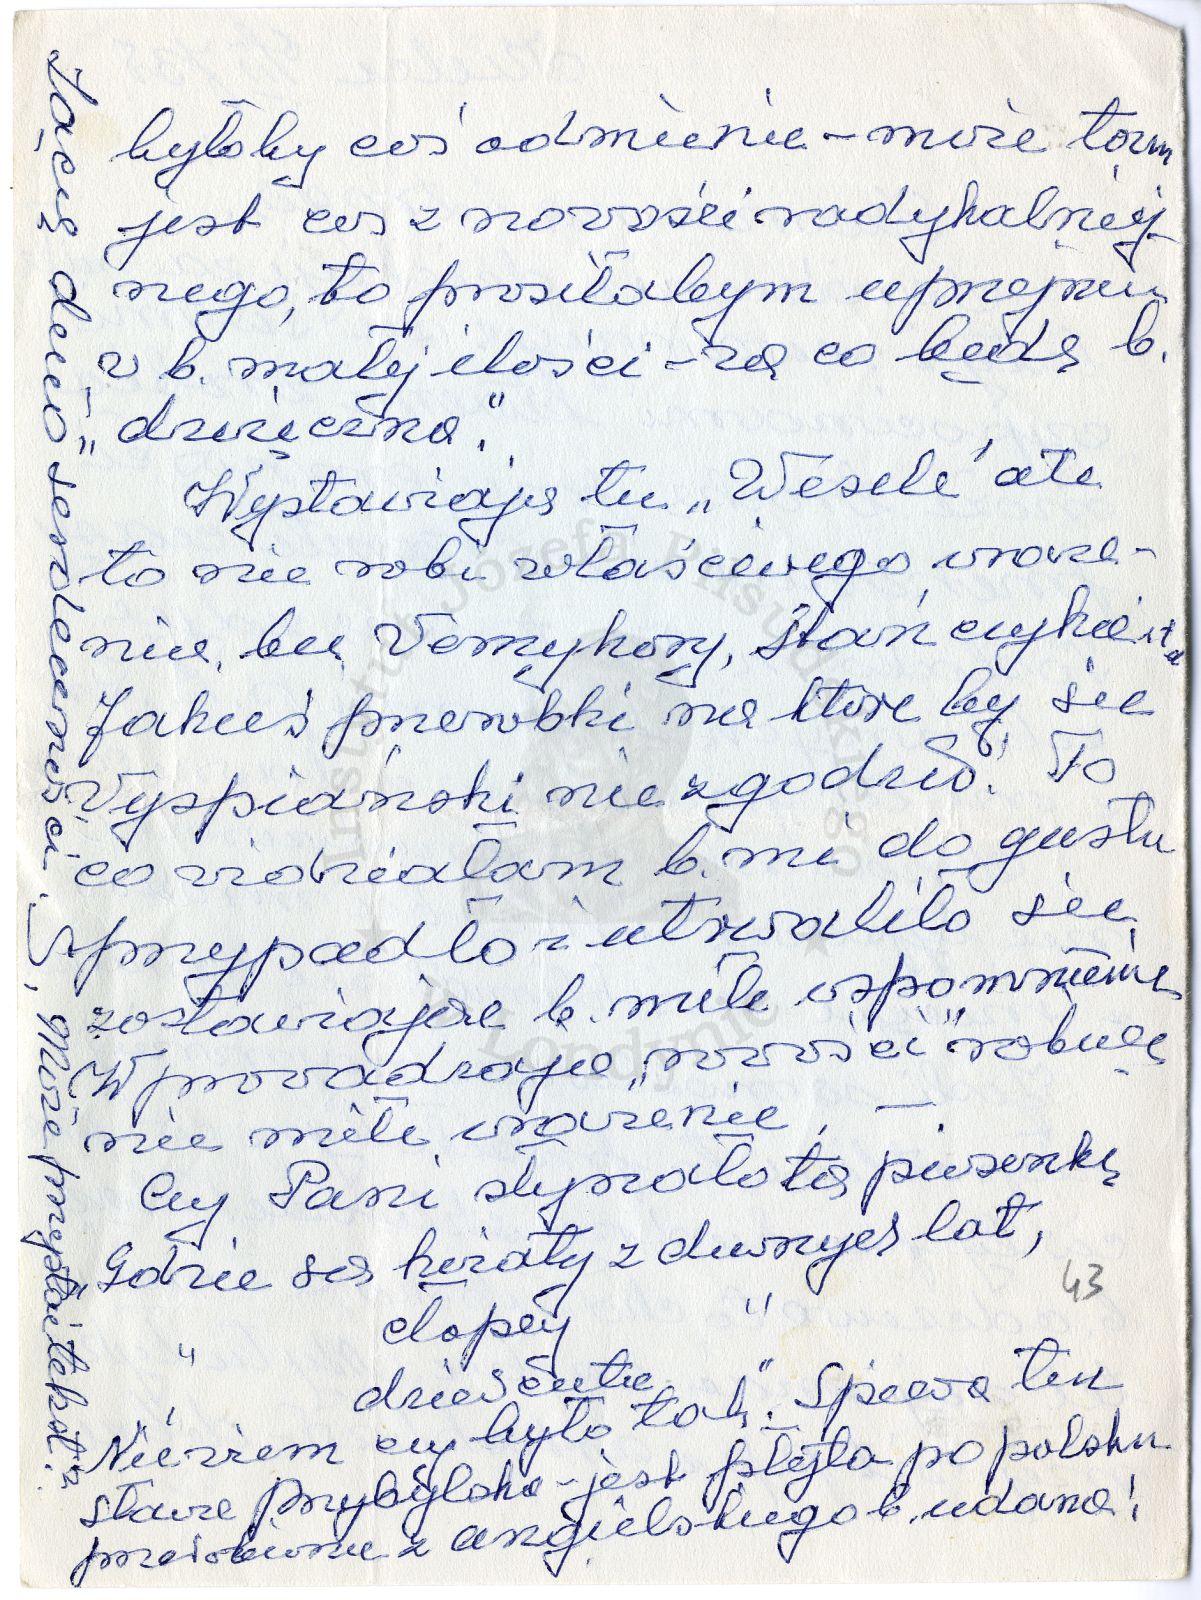 byłoby coś odmienne - może tam
jest coś z nowości radykalniej-
nego, to prosiłabym uprzejmie
w b. małej ilości - za co będę b.
"dzwięczna".
Wystawiają tu „Wesele" ale
to nie robi właściwego wraże-
nia, bez Wernyhory, Stańczyka itd
Jakieś przeróbki na które by się
Wyspiański nie zgodził! To
co widziałam b. mi do gustu
przypadło i utrwaliło się
zostawiając b. miłe wspomnienie
Wprowadzając „nowości" robią
nie miłe wrażenie. —
Czy Pani słyszała tą piosenkę
Gdzie są kwiaty z dawnych lat,
" chłopcy "
" dziewczęta ". Spiewa ten
Nie wiem czy było tak
stare Przybylska - jest płyta po polsku
przerobione z angielskiego b. udana!
43
Łączę dużo serdeczności.
, może przysłać tekst?
Instytut Józefa Piłsudskiego
w Londynie